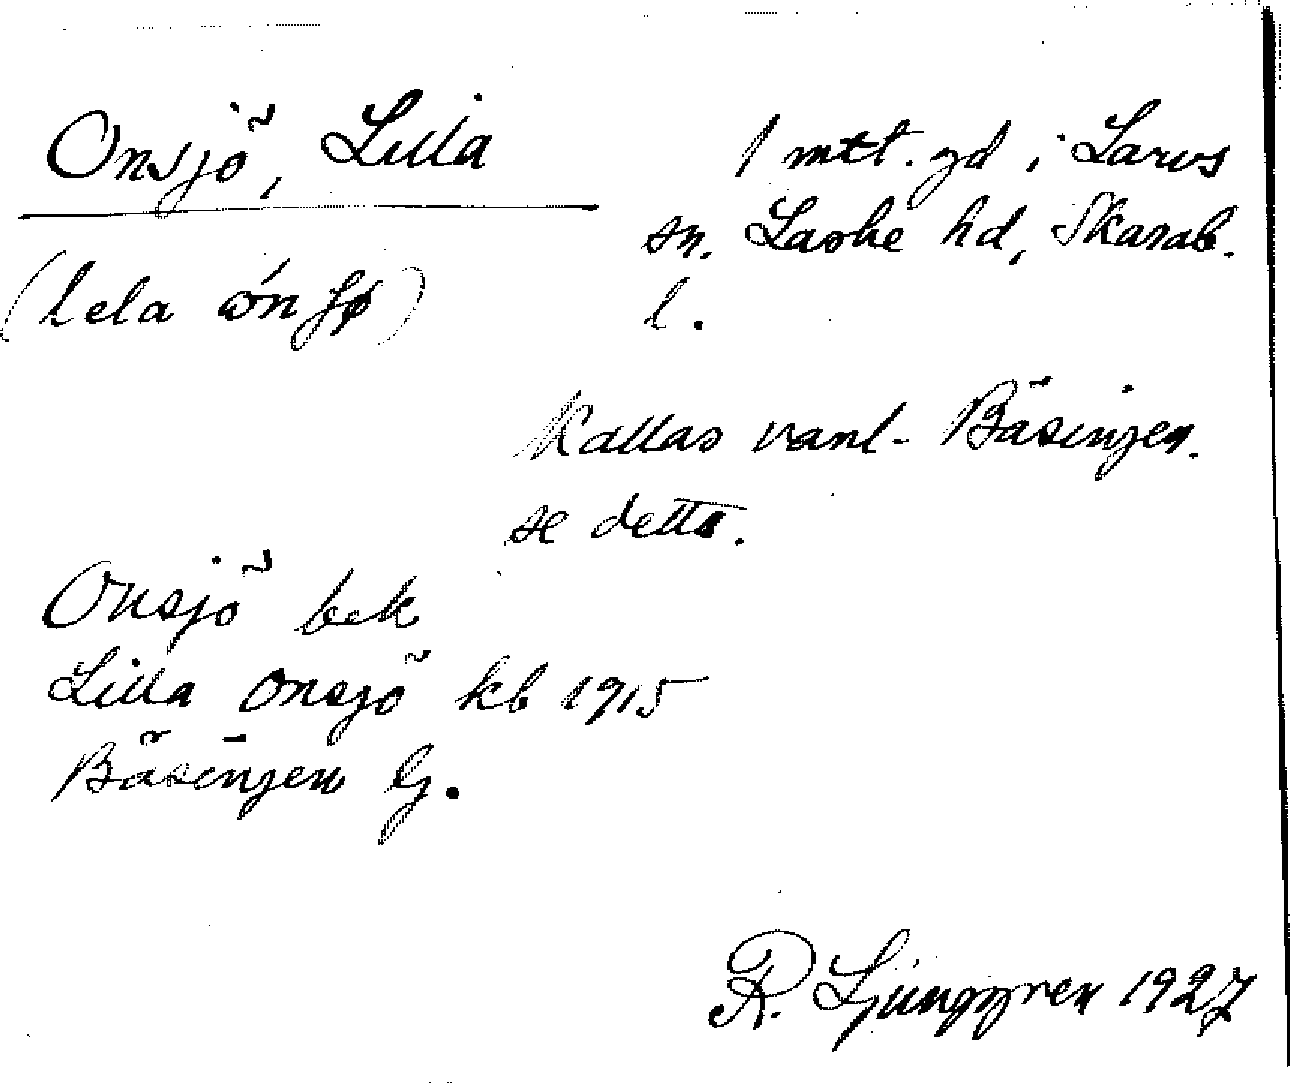 Onsjö, Lilla
1 mtl. gd i Larvs
sn. Laske hd, Skarab.
l.
(lela ɷ́nʃø)
Kallas vanl. Bäsingen.
se detta.
Onsjö bek
Lilla Onsjö kb 1915
Bäsingen Gj.
R. Ljunggren 1927